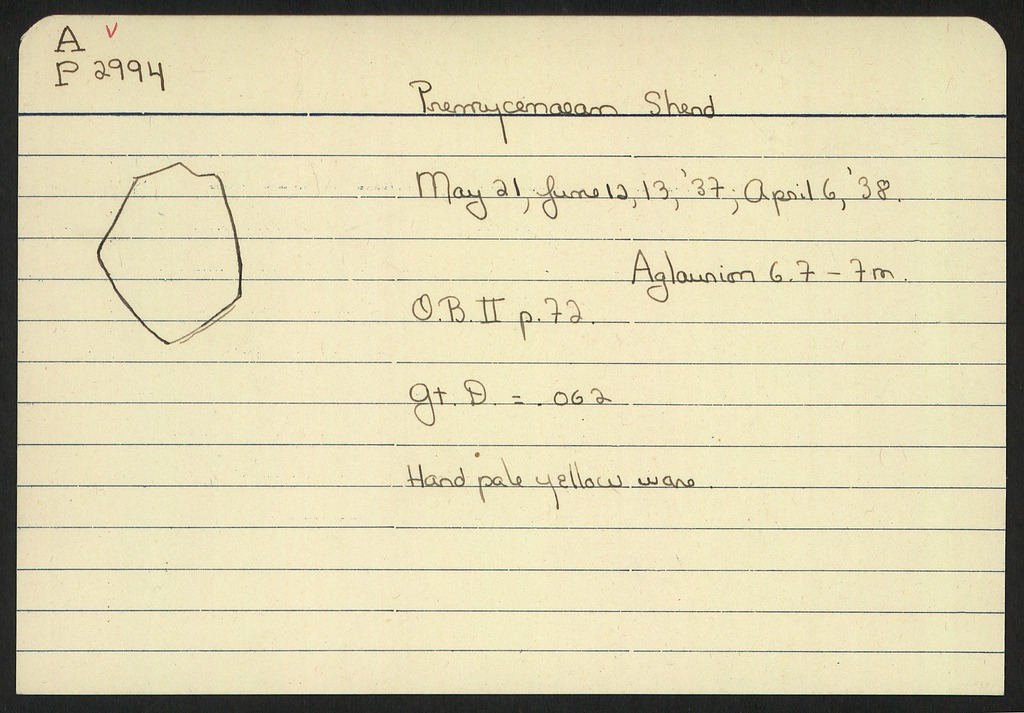 A ✓
P 2994
Premycenaean Sherd
May 21, June 12, 13, '37; April 6, '38.
Aglaurion 6.7 - 7 m.
O.B. II p. 72.
Gt. D. = .062
Hard pale yellow ware.